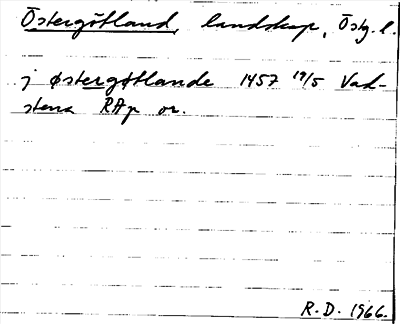 Östergötland, landskap, Östg. l.
j østergøtlande 1457 19/5 Vad-
stena RAp or.
R.D. 1966.